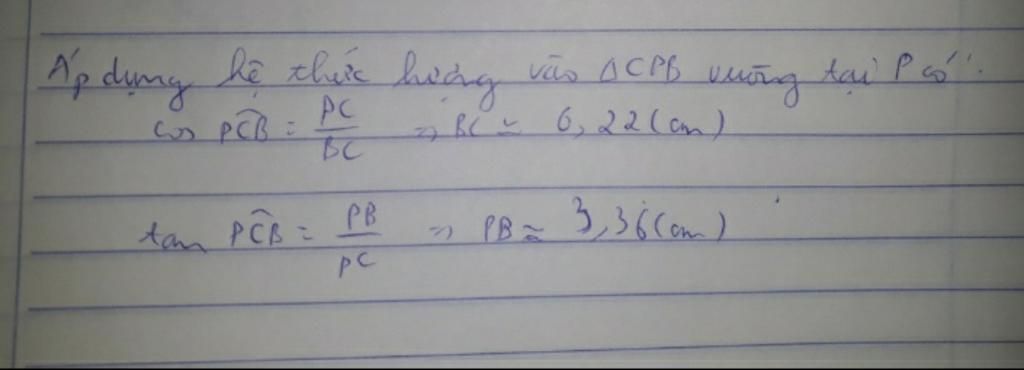 Áp dụng hệ thức lượng vào ΔCPB vuông tại P có:
cos PĈB = PC/BC => BC ≃ 6,22 (cm)
tan PĈB = PB/PC => PB ≃ 3,36 (cm)